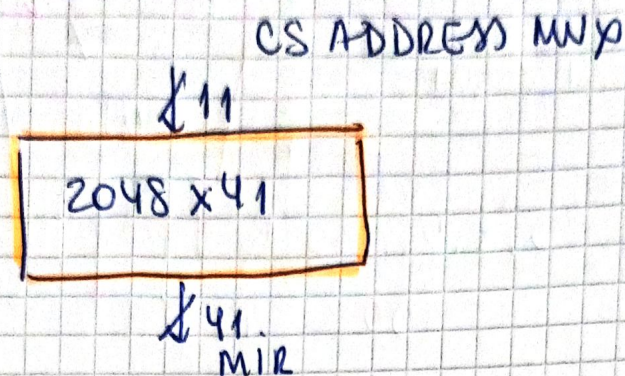 CS ADDRESS MUX
11
2048 x 41
41.
MIR